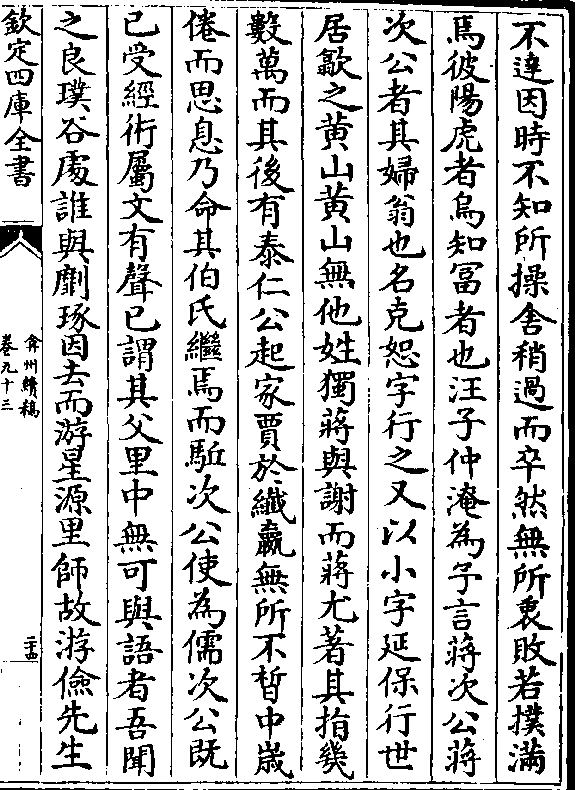 不達因時不知所操舍稍過而卒然無所衷敗若撲滿
焉彼陽虎者烏知冨者也汪子仲淹為予言蔣次公蔣
次公者其婦翁也名克恕字行之又以小字延保行世
居歙之黄山黄山無他姓獨蔣與謝而蔣尤著其指幾
數萬而其後有泰仁公起家賈於纖羸無所不晳中歲
倦而思息乃命其伯氏繼焉而駈次公使為儒次公既
已受經術屬文有聲已謂其父里中無可與語者吾聞
之良璞谷䖏誰與劘琢因去而游星源里師故游儉先生
欽定四庫全書
弇州續稿
卷九十三
二十四